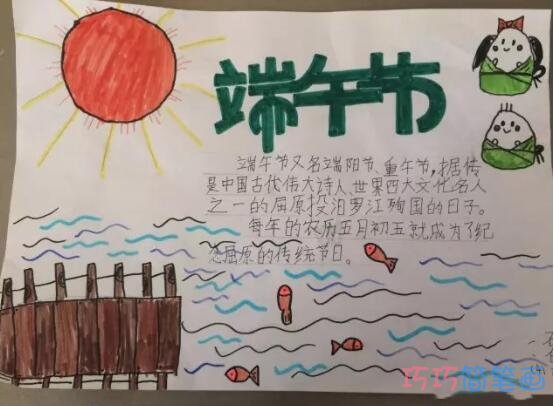 端午节
端午节又名端阳节、重午节,据传
是中国古代伟大诗人、世界四大文化名人
之一的屈原投汨罗江殉国的日子。
每年的农历五月初五就成为了纪
念屈原的传统节日。
巧巧简笔画